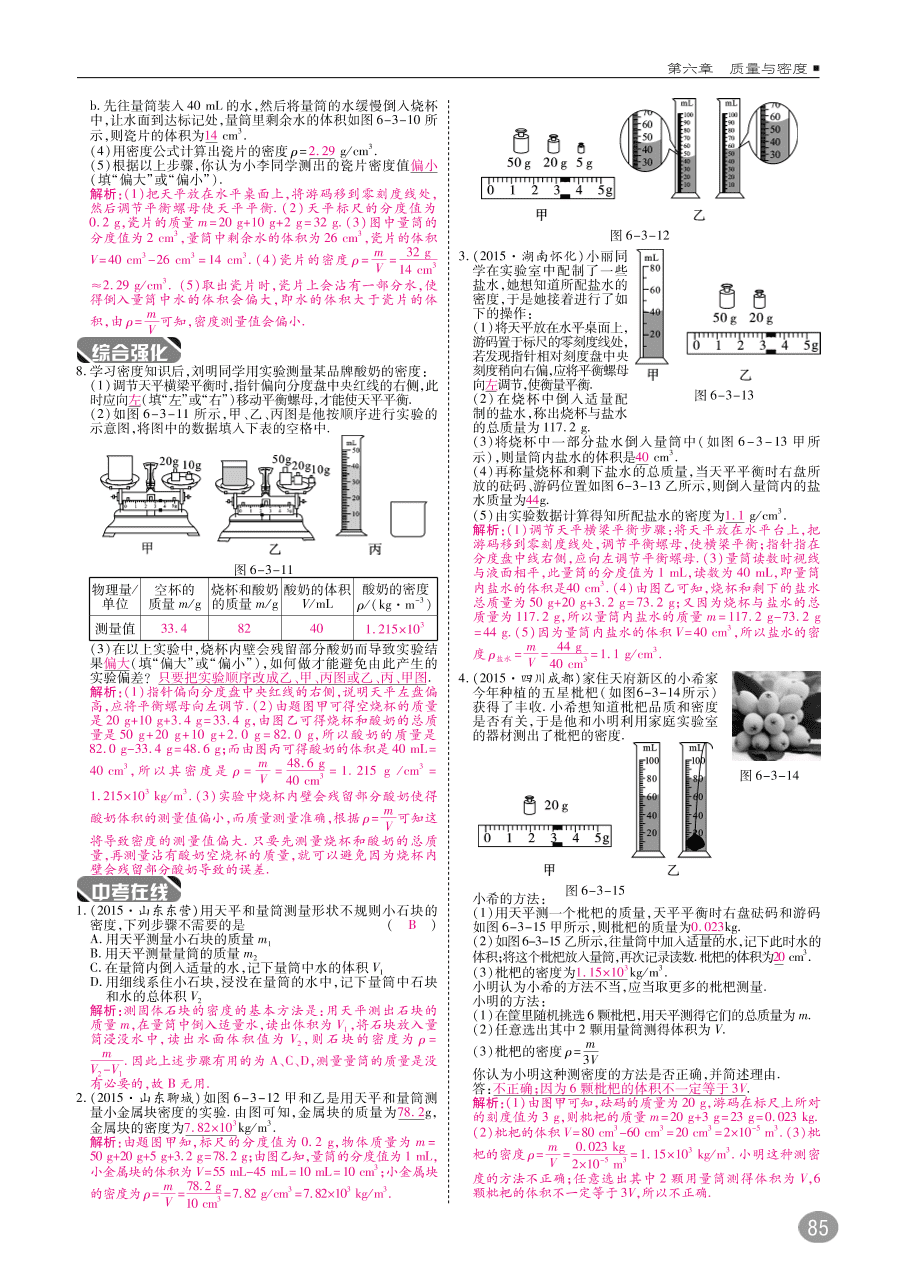 第六章 质量与密度
b. 先往量筒装入 40 mL 的水,然后将量筒的水缓慢倒入烧杯
中,让水面到达标记处,量筒里剩余水的体积如图 6-3-10 所
示,则瓷片的体积为14 cm³.
(4)用密度公式计算出瓷片的密度 ρ=2.29 g/cm³.
(5)根据以上步骤,你认为小李同学测出的瓷片密度值偏小
(填“偏大”或“偏小”).
解析:(1)把天平放在水平桌面上,将游码移到零刻度线处,
然后调节平衡螺母使天平平衡.(2)天平标尺的分度值为
0.2 g,瓷片的质量 m=20 g+10 g+2 g=32 g.(3)图中量筒的
分度值为 2 cm³,量筒中剩余水的体积为 26 cm³,瓷片的体积
V=40 cm³-26 cm³=14 cm³.(4)瓷片的密度 ρ=m/V=32 g/14 cm³
≈2.29 g/cm³. (5)取出瓷片时,瓷片上会沾有一部分水,使
得倒入量筒中水的体积会偏大,即水的体积大于瓷片的体
积,由 ρ=m/V可知,密度测量值会偏小.
综合强化
8. 学习密度知识后,刘明同学用实验测量某品牌酸奶的密度:
(1)调节天平横梁平衡时,指针偏向分度盘中央红线的右侧,此
时应向左(填“左”或“右”)移动平衡螺母,才能使天平平衡.
(2)如图 6-3-11 所示,甲、乙、丙图是他按顺序进行实验的
示意图,将图中的数据填入下表的空格中.
20g 10g
50g 20g 10g
mL
50
40
30
20
10
甲 乙 丙
图 6-3-11
物理量/单位 空杯的质量 m/g 烧杯和酸奶的质量 m/g 酸奶的体积 V/mL 酸奶的密度 ρ/(kg·m⁻³)
测量值 33.4 82 40 1.215×10³
(3)在以上实验中,烧杯内壁会残留部分酸奶而导致实验结
果偏大(填“偏大”或“偏小”),如何做才能避免由此产生的
实验偏差? 只要把实验顺序改成乙、甲、丙图或乙、丙、甲图.
解析:(1)指针偏向分度盘中央红线的右侧,说明天平左盘偏
高,应将平衡螺母向左调节.(2)由题图甲可得空烧杯的质量
是 20 g+10 g+3.4 g=33.4 g,由图乙可得烧杯和酸奶的总质
量是 50 g+20 g+10 g+2.0 g=82.0 g,所以酸奶的质量是
82.0 g-33.4 g=48.6 g;而由图丙可得酸奶的体积是 40 mL=
40 cm³,所以其密度是 ρ=m/V=48.6 g/40 cm³=1.215 g/cm³=
1.215×10³ kg/m³.(3)实验中烧杯内壁会残留部分酸奶使得
酸奶体积的测量值偏小,而质量测量准确,根据 ρ=m/V可知这
将导致密度的测量值偏大.只要先测量烧杯和酸奶的总质
量,再测量沾有酸奶空烧杯的质量,就可以避免因为烧杯内
壁会残留部分酸奶导致的误差.
中考在线
1. (2015·山东东营)用天平和量筒测量形状不规则小石块的
密度,下列步骤不需要的是 ( B )
A. 用天平测量小石块的质量 m₁
B. 用天平测量量筒的质量 m₂
C. 在量筒内倒入适量的水,记下量筒中水的体积 V₁
D. 用细线系住小石块,浸没在量筒的水中,记下量筒中石块
和水的总体积 V₂
解析:测固体石块的密度的基本方法是:用天平测出石块的
质量 m,在量筒中倒入适量水,读出体积为 V₁,将石块放入量
筒浸没水中,读出水面体积值为 V₂,则石块的密度为 ρ=
m/(V₂-V₁).因此上述步骤有用的为 A、C、D,测量量筒的质量是没
有必要的,故 B 无用.
2. (2015·山东聊城)如图 6-3-12 甲和乙是用天平和量筒测
量小金属块密度的实验. 由图可知,金属块的质量为78.2g,
金属块的密度为7.82×10³kg/m³.
解析:由题图甲知,标尺的分度值为 0.2 g,物体质量为 m=
50 g+20 g+5 g+3.2 g=78.2 g;由图乙知,量筒的分度值为 1 mL,
小金属块的体积为 V=55 mL-45 mL=10 mL=10 cm³;小金属块
的密度为 ρ=m/V=78.2 g/10 cm³=7.82 g/cm³=7.82×10³ kg/m³.
50 g 20 g 5 g
0 1 2 3 4 5g
甲
70
60
50
40
30
mL
100
90
80
70
60
50
40
30
20
10
mL
100
90
80
70
60
50
40
30
20
10
70
60
50
40
30
乙
图 6-3-12
3. (2015·湖南怀化)小丽同
学在实验室中配制了一些
盐水,她想知道所配盐水的
密度,于是她接着进行了如
下的操作:
(1)将天平放在水平桌面上,
游码置于标尺的零刻度线处,
若发现指针相对刻度盘中央
刻度稍向右偏,应将平衡螺母
向左调节,使衡量平衡.
(2)在烧杯中倒入适量配
制的盐水,称出烧杯与盐水
的总质量为 117.2 g.
mL
80
60
40
20
甲
50 g 20 g
0 1 2 3 4 5g
乙
图 6-3-13
(3)将烧杯中一部分盐水倒入量筒中(如图 6-3-13 甲所
示),则量筒内盐水的体积是40 cm³.
(4)再称量烧杯和剩下盐水的总质量,当天平平衡时右盘所
放的砝码、游码位置如图6-3-13乙所示,则倒入量筒内的盐
水质量为44g.
(5)由实验数据计算得知所配盐水的密度为1.1 g/cm³.
解析:(1)调节天平横梁平衡步骤:将天平放在水平台上,把
游码移到零刻度线处,调节平衡螺母,使横梁平衡;指针指在
分度盘中线右侧,应向左调节平衡螺母.(3)量筒读数时视线
与液面相平,此量筒的分度值为 1 mL,读数为 40 mL,即量筒
内盐水的体积是40 cm³.(4)由图乙可知,烧杯和剩下的盐水
总质量为 50 g+20 g+3.2 g=73.2 g;又因为烧杯与盐水的总
质量为 117.2 g,所以量筒内盐水的质量 m=117.2 g-73.2 g
=44 g.(5)因为量筒内盐水的体积 V=40 cm³,所以盐水的密
度 ρ盐水=m/V=44 g/40 cm³=1.1 g/cm³.
4. (2015·四川成都)家住天府新区的小希家
今年种植的五星枇杷(如图6-3-14所示)
获得了丰收. 小希想知道枇杷品质和密度
是否有关,于是他和小明利用家庭实验室
的器材测出了枇杷的密度.
图 6-3-14
20 g
0 1 2 3 4 5g
甲
mL
100
80
60
40
20
mL
100
80
60
40
20
乙
图 6-3-15
小希的方法:
(1)用天平测一个枇杷的质量,天平平衡时右盘砝码和游码
如图 6-3-15 甲所示,则枇杷的质量为0.023kg.
(2)如图6-3-15乙所示,往量筒中加入适量的水,记下此时水的
体积;将这个枇杷放入量筒,再次记录读数. 枇杷的体积为20 cm³.
(3)枇杷的密度为1.15×10³kg/m³.
小明认为小希的方法不当,应当取更多的枇杷测量.
小明的方法:
(1)在筐里随机挑选 6 颗枇杷,用天平测得它们的总质量为 m.
(2)任意选出其中 2 颗用量筒测得体积为 V.
(3)枇杷的密度 ρ=m/3V
你认为小明这种测密度的方法是否正确,并简述理由.
答:不正确;因为 6 颗枇杷的体积不一定等于 3V.
解析:(1)由图甲可知,砝码的质量为 20 g,游码在标尺上所对
的刻度值为 3 g,则枇杷的质量 m=20 g+3 g=23 g=0.023 kg.
(2)枇杷的体积 V=80 cm³-60 cm³=20 cm³=2×10⁻⁵ m³.(3)枇
杷的密度 ρ=m/V=0.023 kg/2×10⁻⁵ m³=1.15×10³ kg/m³.小明这种测密
度的方法不正确;任意选出其中 2 颗用量筒测得体积为 V,6
颗枇杷的体积不一定等于 3V,所以不正确.
85